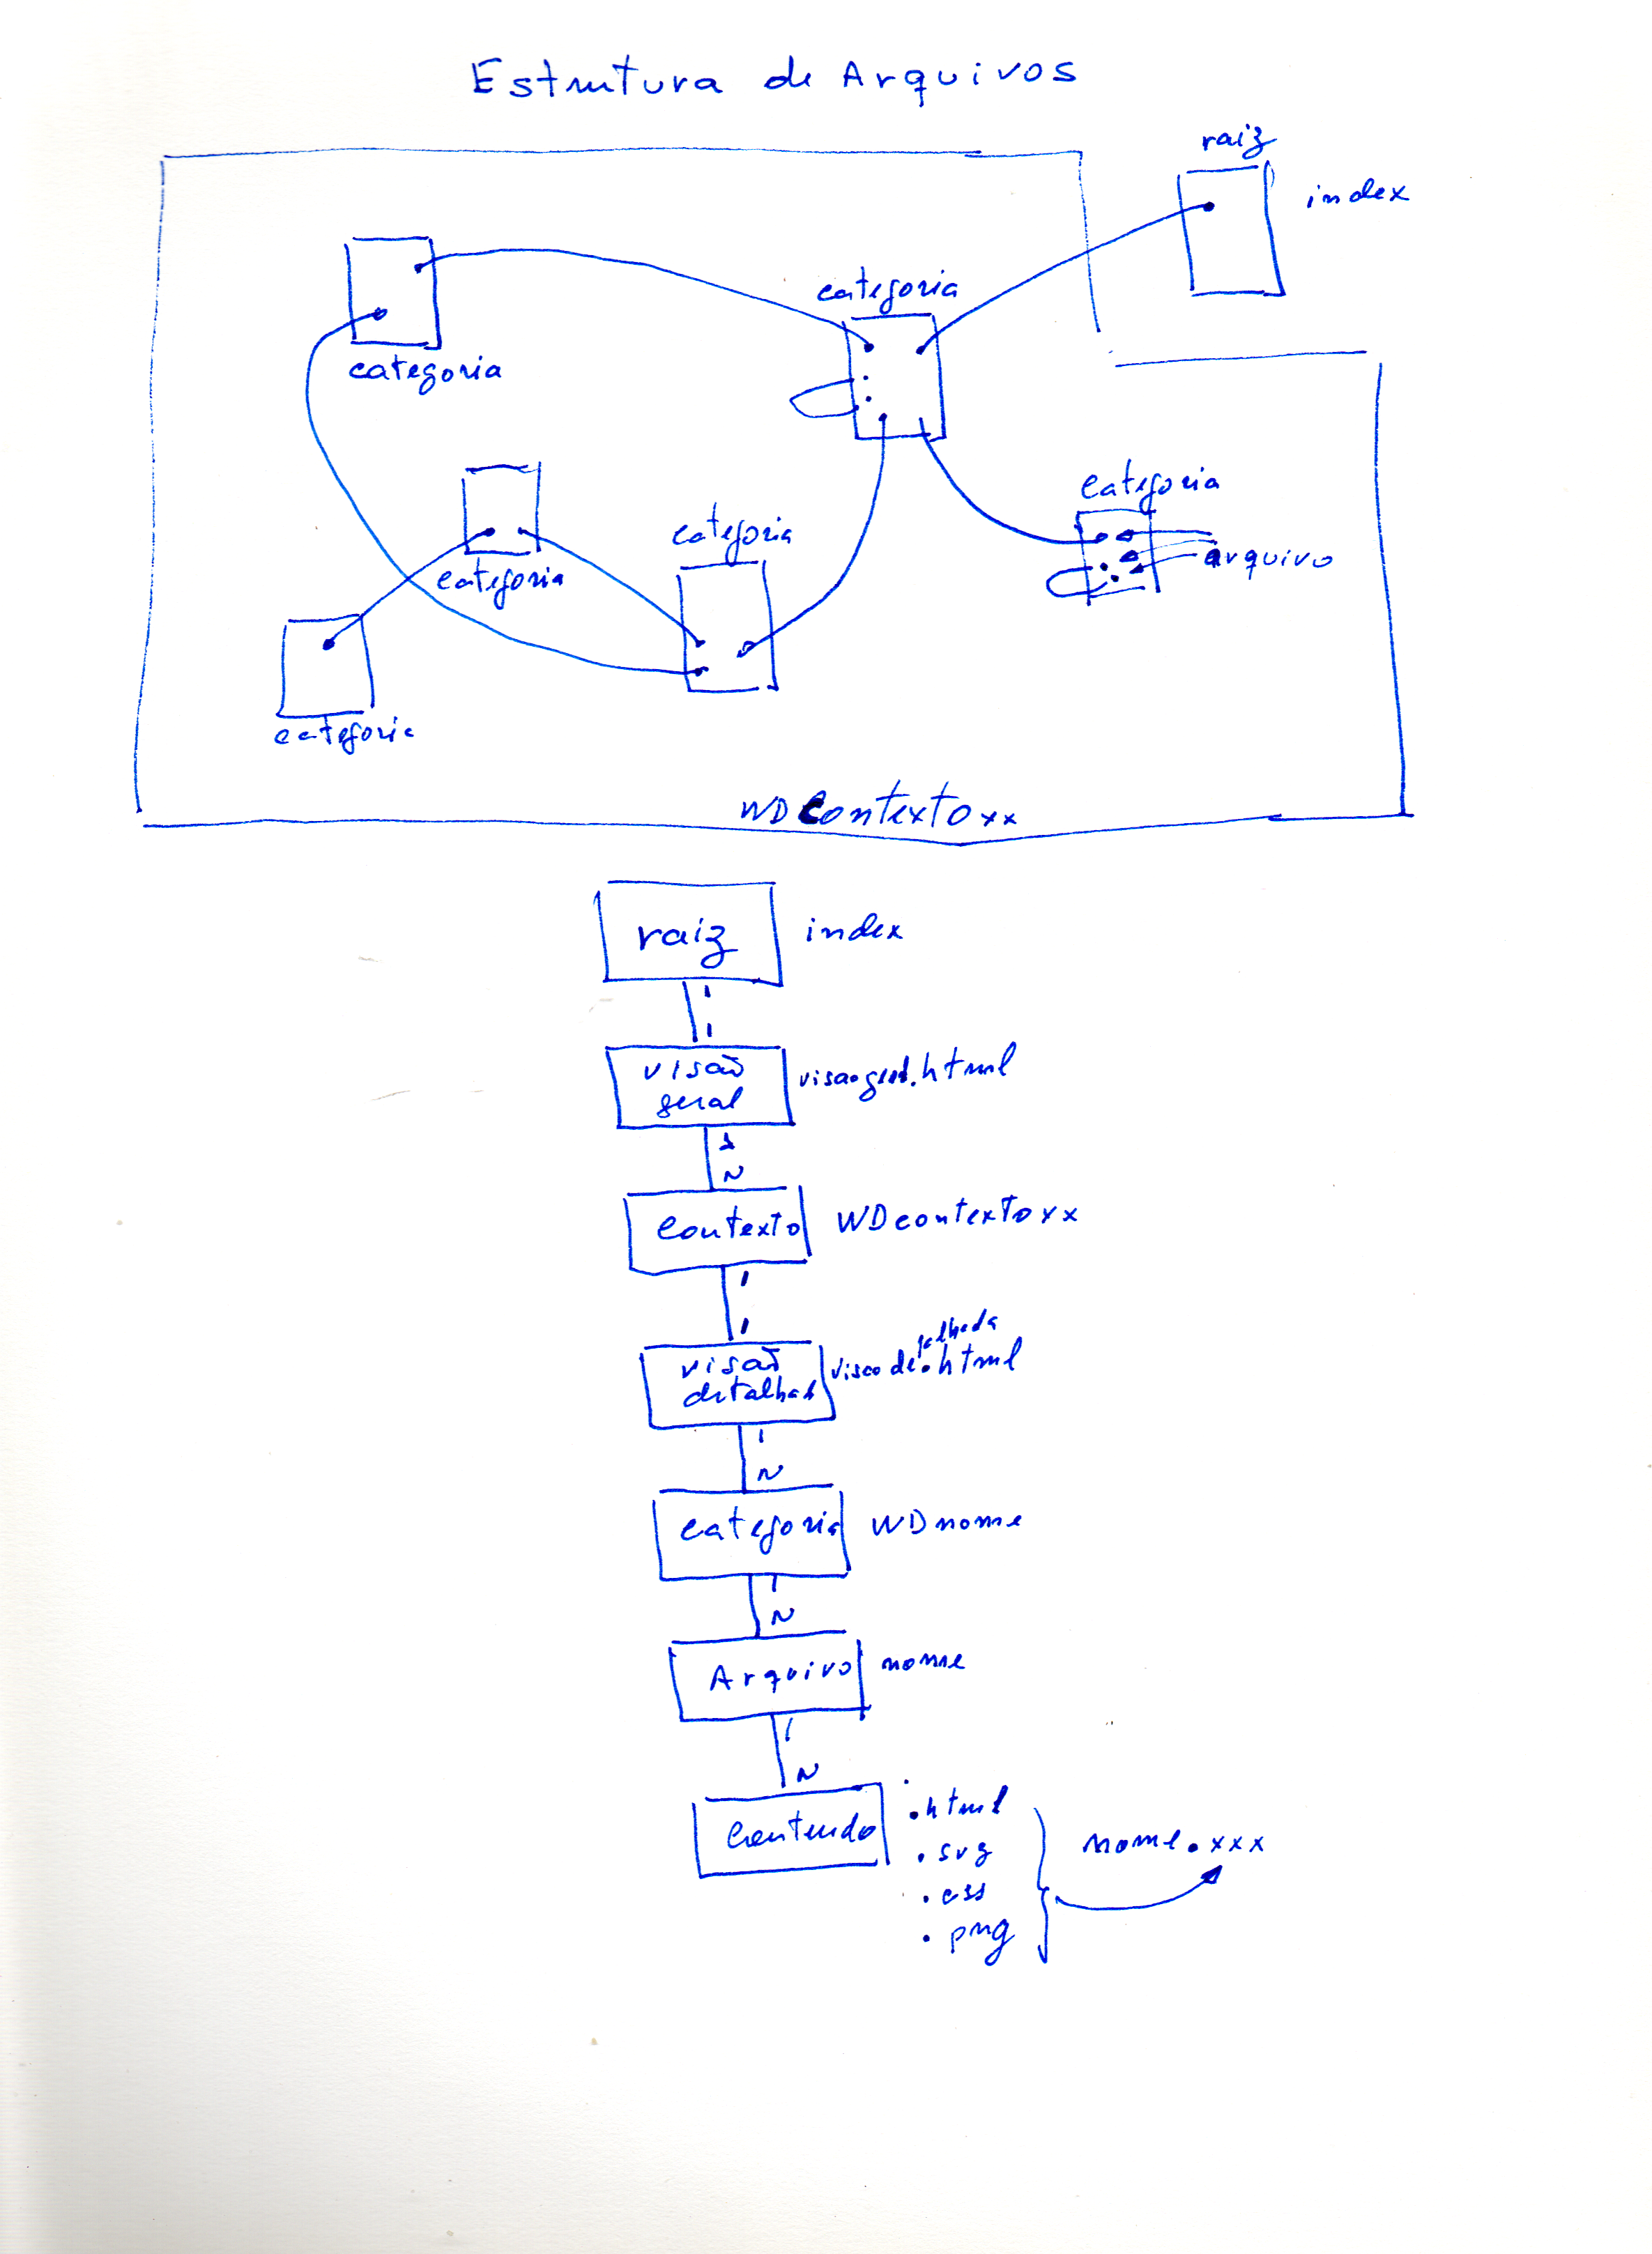 Estrutura de Arquivos
raiz
index
categoria
categoria
categoria
categoria
categoria
arquivo
categoria
WDContextoxx
raiz
index
visão
geral
visaogeral.html
1
N
contexto
WDcontextoxx
1
1
visão
detalhad
visaodetalhada.html
1
N
categoria
WDnome
1
N
Arquivo
nome
1
N
Conteudo
.html
.svg
.css
.png
nome.xxx